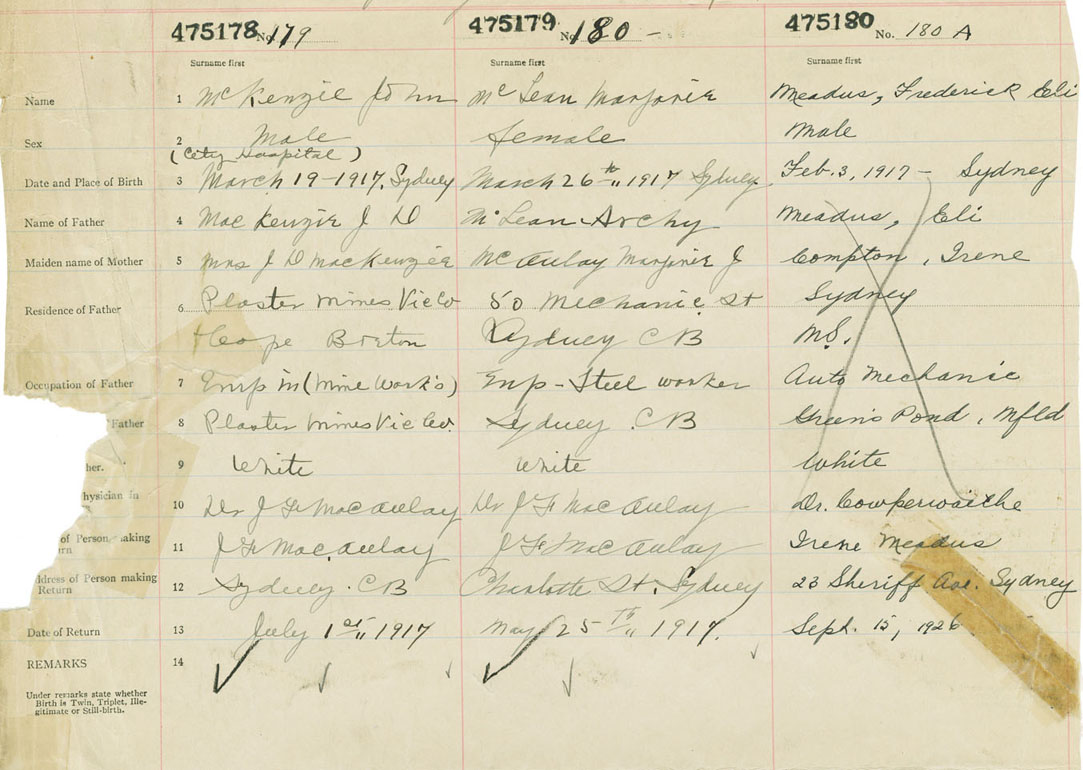 475178 No. 179 475179 No. 180 - 475180 No. 180 A
Surname first Surname first Surname first
Name 1 McKenzie John McLean Marjorie Meadus, Frederick Eli
Sex 2 Male female Male
(City Hospital)
Date and Place of Birth 3 March 19-1917, Sydney March 26th 1917 Sydney Feb. 3, 1917 - Sydney
Name of Father 4 MacKenzie J D McLean Archy Meadus, Eli
Maiden name of Mother 5 Mrs J D MacKenzie McAulay Marjorie J Compton, Irene
Residence of Father 6 Plaster Mines Vic Co 50 Mechanic St Sydney
Cape Breton Sydney CB N.S.
Occupation of Father 7 Emp in (Mine Work's) Emp - Steel worker Auto Mechanic
Father 8 Plaster Mines Vic Co. Sydney. CB Green's Pond, Nfld
her. 9 White White White
hysician in 10 Dr J F MacAulay Dr J F MacAulay Dr. Cowperwaithe
of Person making
rn 11 J F MacAulay J F MacAulay Irene Meadus
ddress of Person making
Return 12 Sydney. CB Charlotte St. Sydney 23 Sheriff Ave. Sydney
Date of Return 13 July 1st 1917 May 25th 1917. Sept. 15, 1926
REMARKS 14
Under remarks state whether
Birth is Twin, Triplet, Ille-
gitimate or Still-birth.